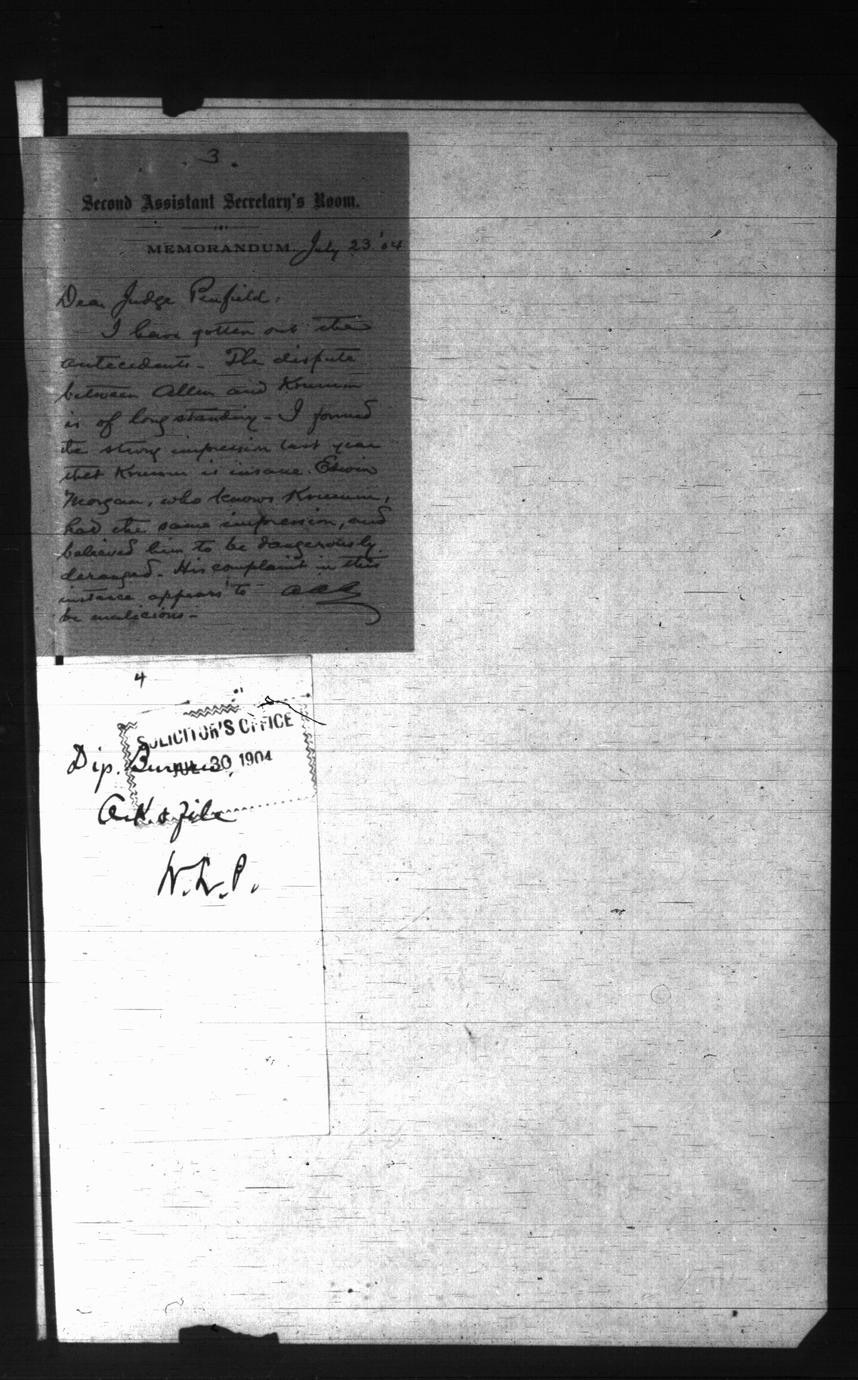 3.
Second Assistant Secretary's Room.
MEMORANDUM. July 23 '04
Dear Judge Penfield:
I have gotten out the
antecedents. The dispute
between Allen and Krumm
is of long standing - I formed
the strong impression last year
that Krumm is insane. Edwin
Morgan, who knows Krumm,
had the same impression, and
believed him to be dangerously
deranged. His complaint in this
instance appears to
be malicious -
AAA
4
SOLICITOR'S OFFICE
JUL 30 1904
Dip. Bureau,
Ack. & file
W.L.P.